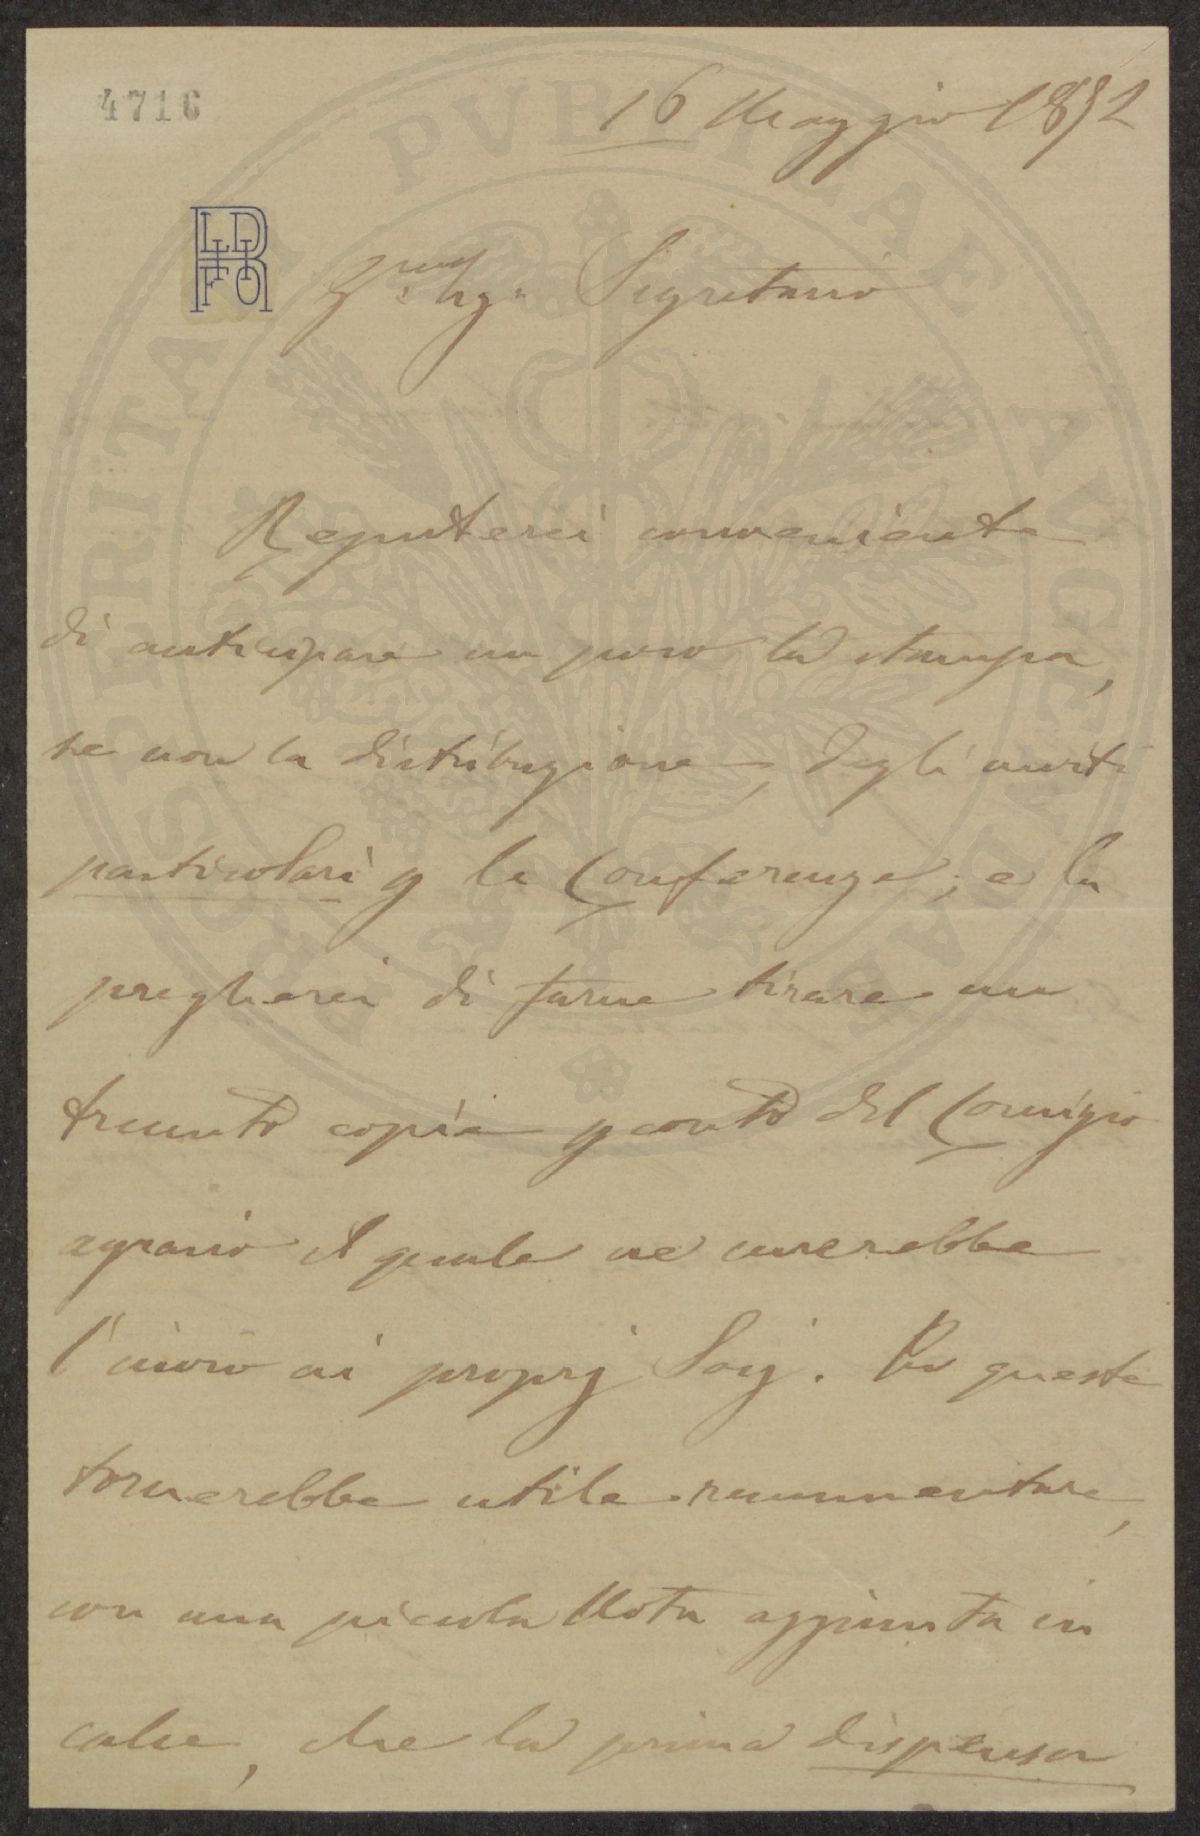 4716
16 Maggio 1892
Segretario
Reputerei conveniente
di anticipare un poco la stampa,
se non la distribuzione, degli inviti
particolari p le Conferenze; e la
pregherei di farne tirare un
trecento copie p conto del Comizio
agrario il quale ne curerebbe
l'invio ai proprj Socj. A queste
tornerebbe utile rammentare,
con una piccola Nota aggiunta in
calce, che la prima dispensa
PROSPERITATI PVBLICAE AVGENDAE